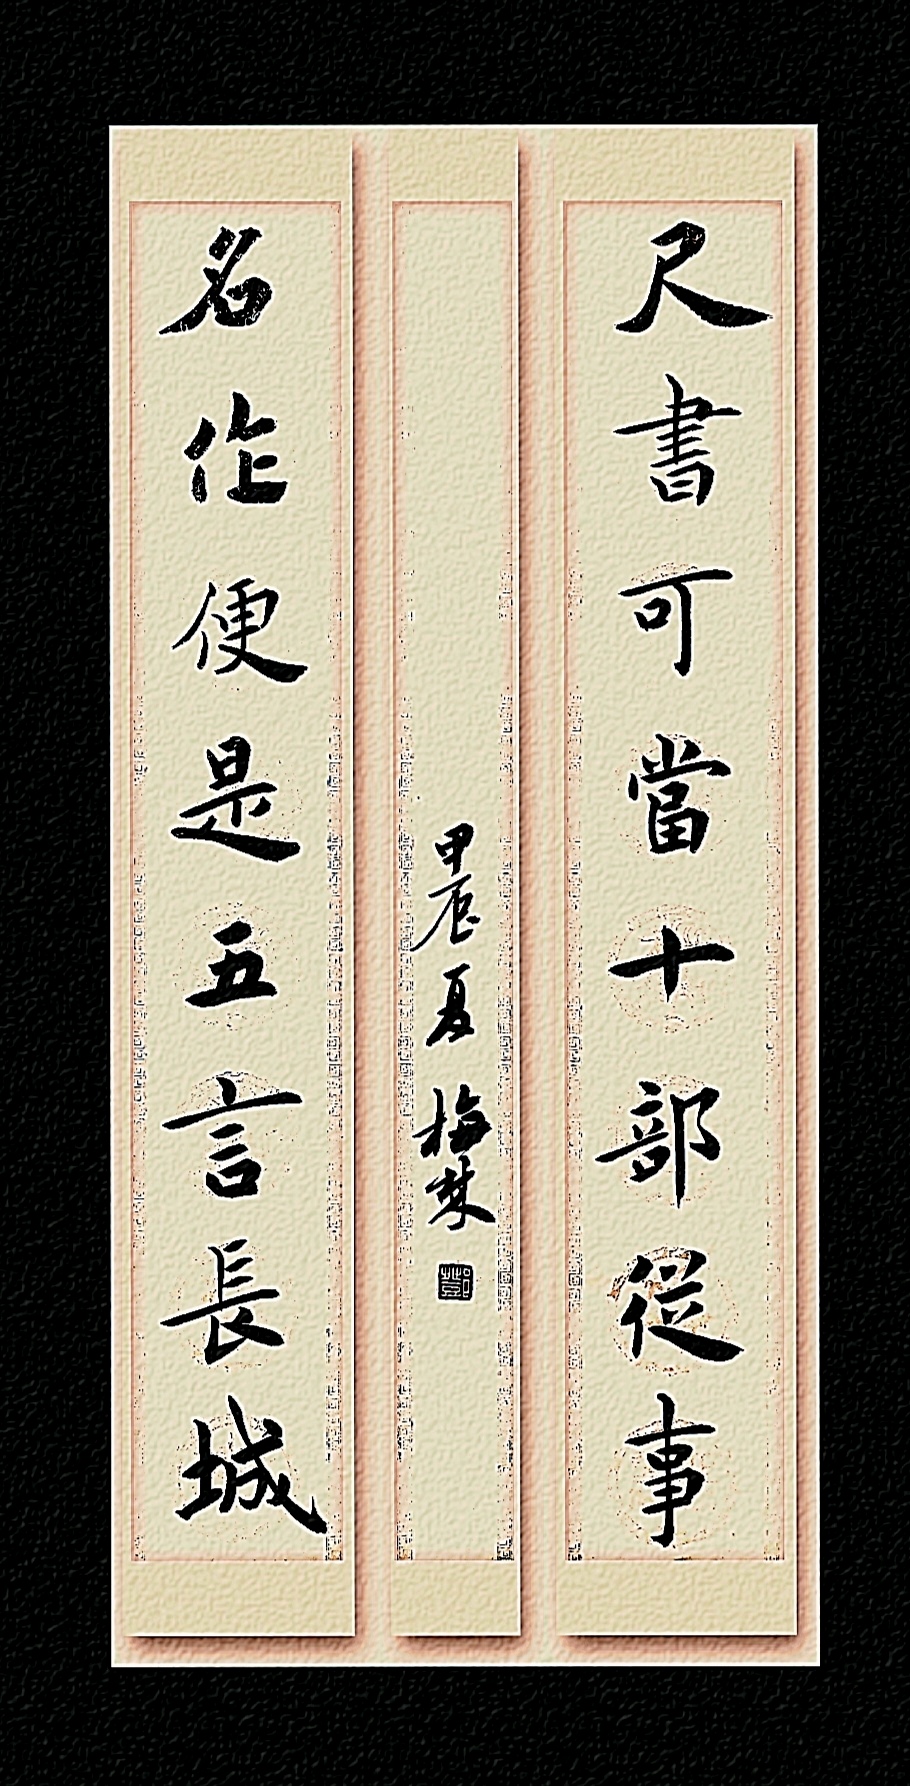 尺書可當十部從事
名作便是五言長城
甲辰夏梅楚